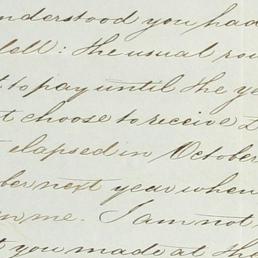 nderstood you had
lell: the usual rou
t to pay until the ye
t choose to receive
elapsed in October
ber next year when
m me. I am not
t you made at the